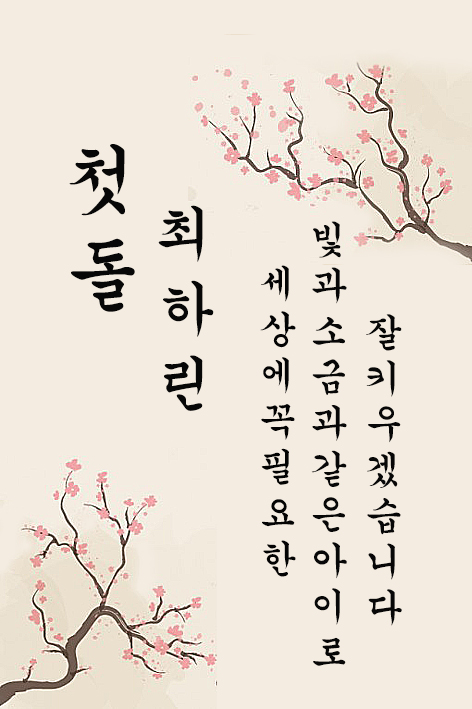 첫돌
최하린
세상에꼭필요한
빛과소금과같은아이로
잘키우겠습니다